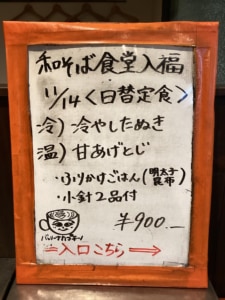 和そば食堂入福
11/14〈日替定食〉
冷)冷やしたぬき
温)甘あげとじ
・ふりかけごはん(明太子 昆布)
・小針2品付
¥900.—
入口こちら→